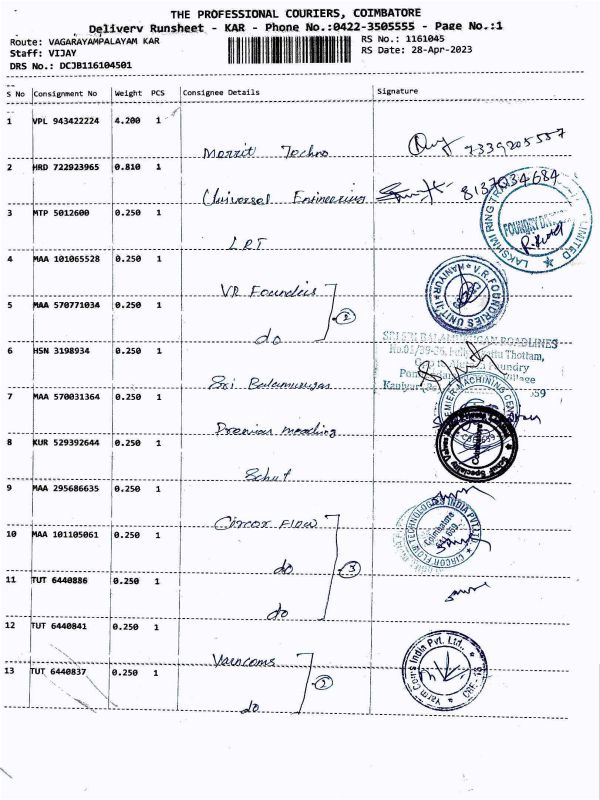 THE PROFESSIONAL COURIERS, COIMBATORE
Delivery Runsheet - KAR - Phone No.:0422-3505555 - Page No.:1
Route: VAGARAYAMPALAYAM KAR
RS No.: 1161045
Staff: VIJAY
RS Date: 28-Apr-2023
DRS No.: DCJB116104501
S No Consignment No Weight PCS Consignee Details Signature
1 VPL 943422224 4.200 1
Merrit Techno 7339205557
2 HRD 722923965 0.810 1
Universal Enineering 8137034684
3 MTP 5012600 0.250 1
LRT
LAKSHMI RING TRA LIMITED
FOUNDRY DIVISION
4 MAA 101065528 0.250 1
VR Foundeis
V.R. FOUNDRIES UNIT-II KANIYUR
5 MAA 570771034 0.250 1
do 2
6 HSN 3198934 0.250 1
Sri Balamurugan
SRI SRI BALAMURUGAN ROADLINES
Thottam,
Foundry
Village
Kaniyur, 559
7 MAA 570031364 0.250 1
Premier maching
PREMIER MACHINING CEN
8 KUR 529392644 0.250 1
Schut
9 MAA 295686635 0.250 1
Circor Flow
10 MAA 101105061 0.250 1
do 3
CIRCOR FLOW TECHNOLOGIES INDIA PVT.LTD.
Coimbatore
641 659
11 TUT 6440886 0.250 1
do
12 TUT 6440841 0.250 1
Varncoms
13 TUT 6440837 0.250 1
do 2
Yarm Coms India Pvt. Ltd.
CBE